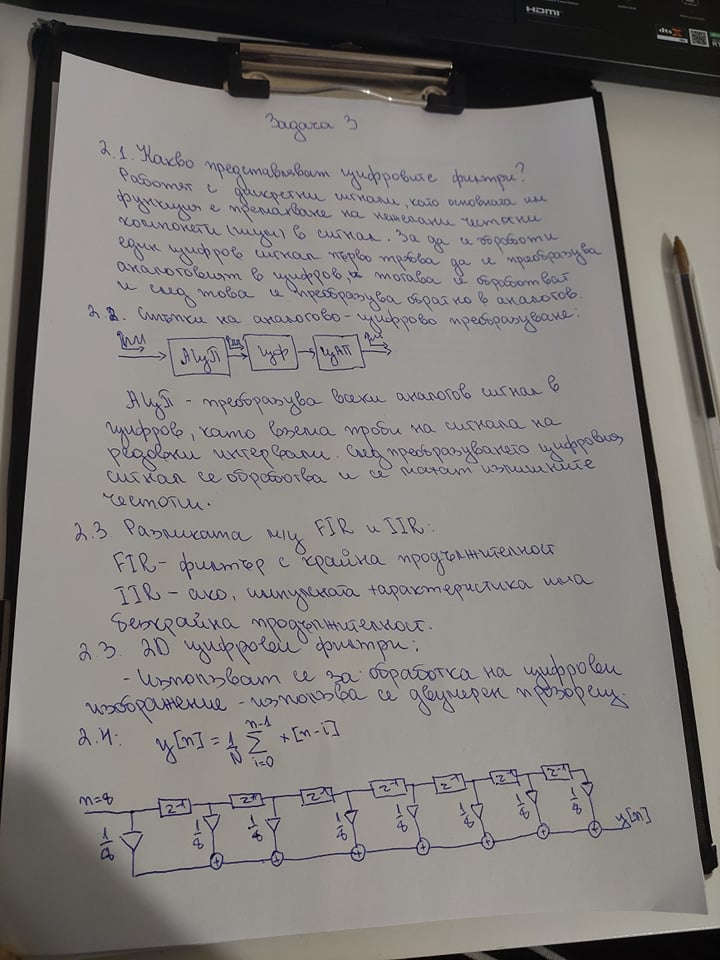 HDMI
Задача 3
2.1. Какво представляват цифровите филтри?
Работят с дискретни сигнали, като основната им
функция е премахване на нежелани честотни
компонети (шум) в сигнал. За да се обработи
един цифров сигнал първо трябва да се преобразува
аналоговият в цифров, тогава се обработват
и след това се преобразува обратно в аналогов.
2.2. Стъпки на аналогово-цифрово преобразуване:
АЦП ЦФ ЦАП
АЦП - преобразува всеки аналогов сигнал в
цифров, като взема проби на сигнала на
редовни интервали. След преобразуването цифровия
сигнал се обработва и се махат излишните
честоти.
2.3. Разликата м/у FIR и IIR:
FIR - филтър с крайна продължителност
IIR - ако, импулсната характеристика има
безкрайна продължителност.
2.3. 2D цифрови филтри:
- Използват се за обработка на цифрови
изображение - използва се двумерен прозорец.
2.4: y[n] = 1/N ∑ i=0 n-1 x[n-i]
n=8 z-1 z-1 z-1 z-1 z-1 z-1 z-1
1/8 1/8 1/8 1/8 1/8 1/8 1/8 1/8 y[n]
+ + + + + + +